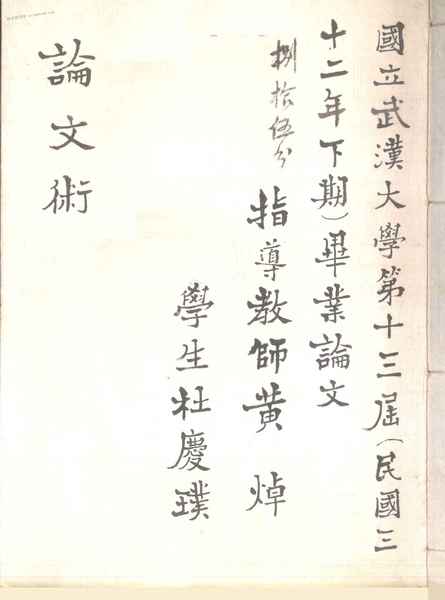 國立武漢大學第十三屆(民國三
十二年下期)畢業論文
捌拾伍分
指導教師黃焯
學生杜慶璞
論文術